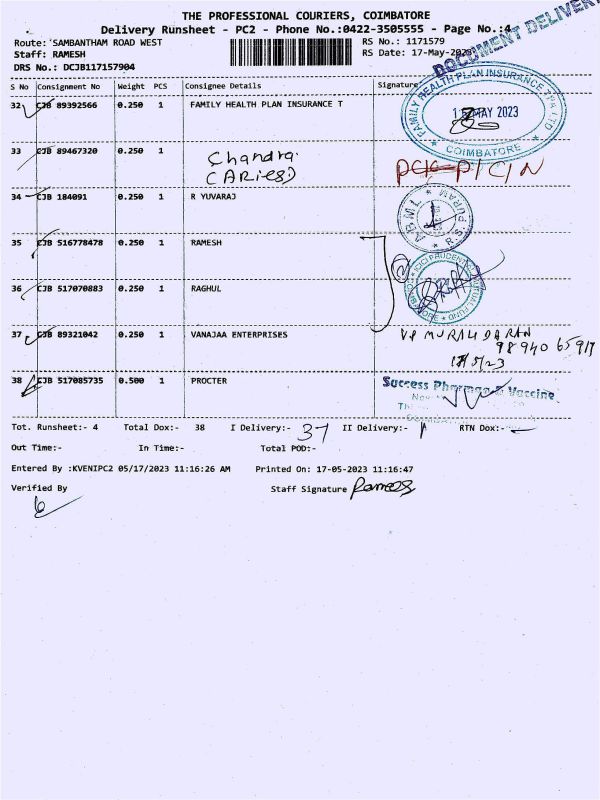 THE PROFESSIONAL COURIERS, COIMBATORE
Delivery Runsheet - PC2 - Phone No.:0422-3505555 - Page No.:4
DOCUMENT DELIVERY
Route: SAMBANTHAM ROAD WEST
RS No.: 1171579
Staff: RAMESH
RS Date: 17-May-2023
DRS No.: DCJB117157904
S No Consignment No Weight PCS Consignee Details Signature
32 CJB 89392566 0.250 1 FAMILY HEALTH PLAN INSURANCE T
FAMILY HEALTH PLAN INSURANCE TPA LTD
MAY 2023
COIMBATORE
33 CJB 89467320 0.250 1 Chandra
(ARies)
34 CJB 184091 0.250 1 R YUVARAJ
R.S. PURAM
35 CJB 516778478 0.250 1 RAMESH
ICICI PRUDENTIAL MUTUAL FUND
36 CJB 517070883 0.250 1 RAGHUL
37 CJB 89321042 0.250 1 VANAJAA ENTERPRISES
VP MURALIDARAN
98940 65917
17/5/23
38 CJB 517085735 0.500 1 PROCTER
Success Pharma & Vaccine
Tot. Runsheet:- 4 Total Dox:- 38 I Delivery:- 37 II Delivery:- 1 RTN Dox:- -
Out Time:- In Time:- Total POD:-
Entered By :KVENIPC2 05/17/2023 11:16:26 AM Printed On: 17-05-2023 11:16:47
Verified By Staff Signature Ramesh